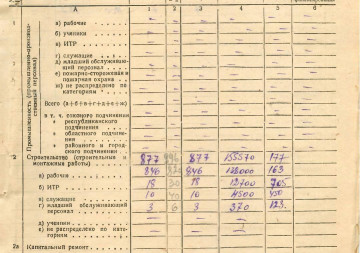 А 1 2 3 4 5 6
1 а) рабочие
б) ученики
в) ИТР
г) служащие
д) младший обслуживаю-
щий персонал
е) пожарно-сторожевая и
пожарная охрана
ж) не распределено по
категориям
Всего (а+б+в+г+д+е+ж)
в т. ч. союзного подчинения
республиканского
подчинения
областного подчине-
ния
районного и город-
ского подчинения
2 Строительство (строительные и
монтажные работы) 877 877 155570 177
а) рабочие 846 846 163
б) ИТР 18 30 18 12700
в) служащие 10 40 10 4500 450
г) младший обслуживающий
персонал 3 6 3 370 123
д) ученики
е) не распределено по кате-
гориям
2а Капитальный ремонт